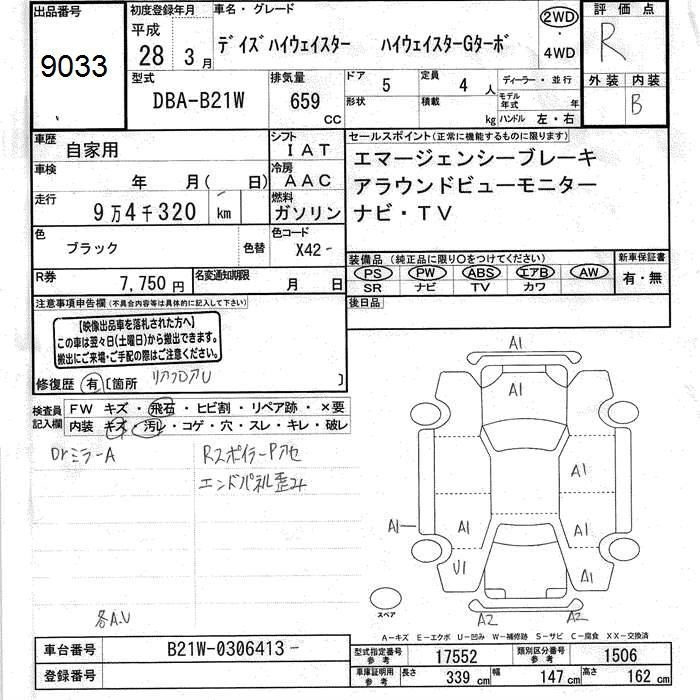 出品番号 初度登録年月 車名・グレード 2WD 評価点
9033 平成 28 3月 デイズハイウェイスター ハイウェイスターGターボ ・ 4WD R
型式 排気量 ドア 5 定員 4 人 ディーラー・並行 外装 内装
DBA-B21W 659 CC 形状 積載 kg モデル年式 年 B
ハンドル 左・右
車歴 自家用 シフト IAT セールスポイント(正常に機能するものに限ります)
車検 年 月( 日) 冷房 AAC エマージェンシーブレーキ
走行 9万4千320 km 燃料 ガソリン アラウンドビューモニター
ナビ・TV
色 ブラック 色替 色コード X42- 装備品(純正品に限り○をつけてください) 新車保証書
PS PW ABS エアB AW 有・無
R券 7,750円 名変通知期限 月 日 SR ナビ TV カワ
注意事項申告欄(不具合内容等は具体的に記入して下さい) 後日品
【映像出品車を落札された方へ】
この車は翌々日(土曜日)から搬出できます。
搬出にご来場・ご手配の際はご注意ください。
修復歴 有 〔箇所 リアフロアU 〕
検査員記入欄 FW キズ・飛石・ヒビ割・リペア跡・×要
内装 キズ・汚レ・コゲ・穴・スレ・キレ・破レ
DrミラーA Rスポイラー アセ
エンドパネル歪み
各A.U
A1
A1
A1
A1 A1 A1
U1 A1
スペア A2 A2
A-キズ E-エクボ U-凹み W-補修跡 S-サビ C-腐食 XX-交換済
車台番号 B21W-0306413- 型式指定番号 参考 17552 類別区分番号 参考 1506
登録番号 車庫証明用 参考 長さ 339 cm 幅 147 cm 高さ 162 cm